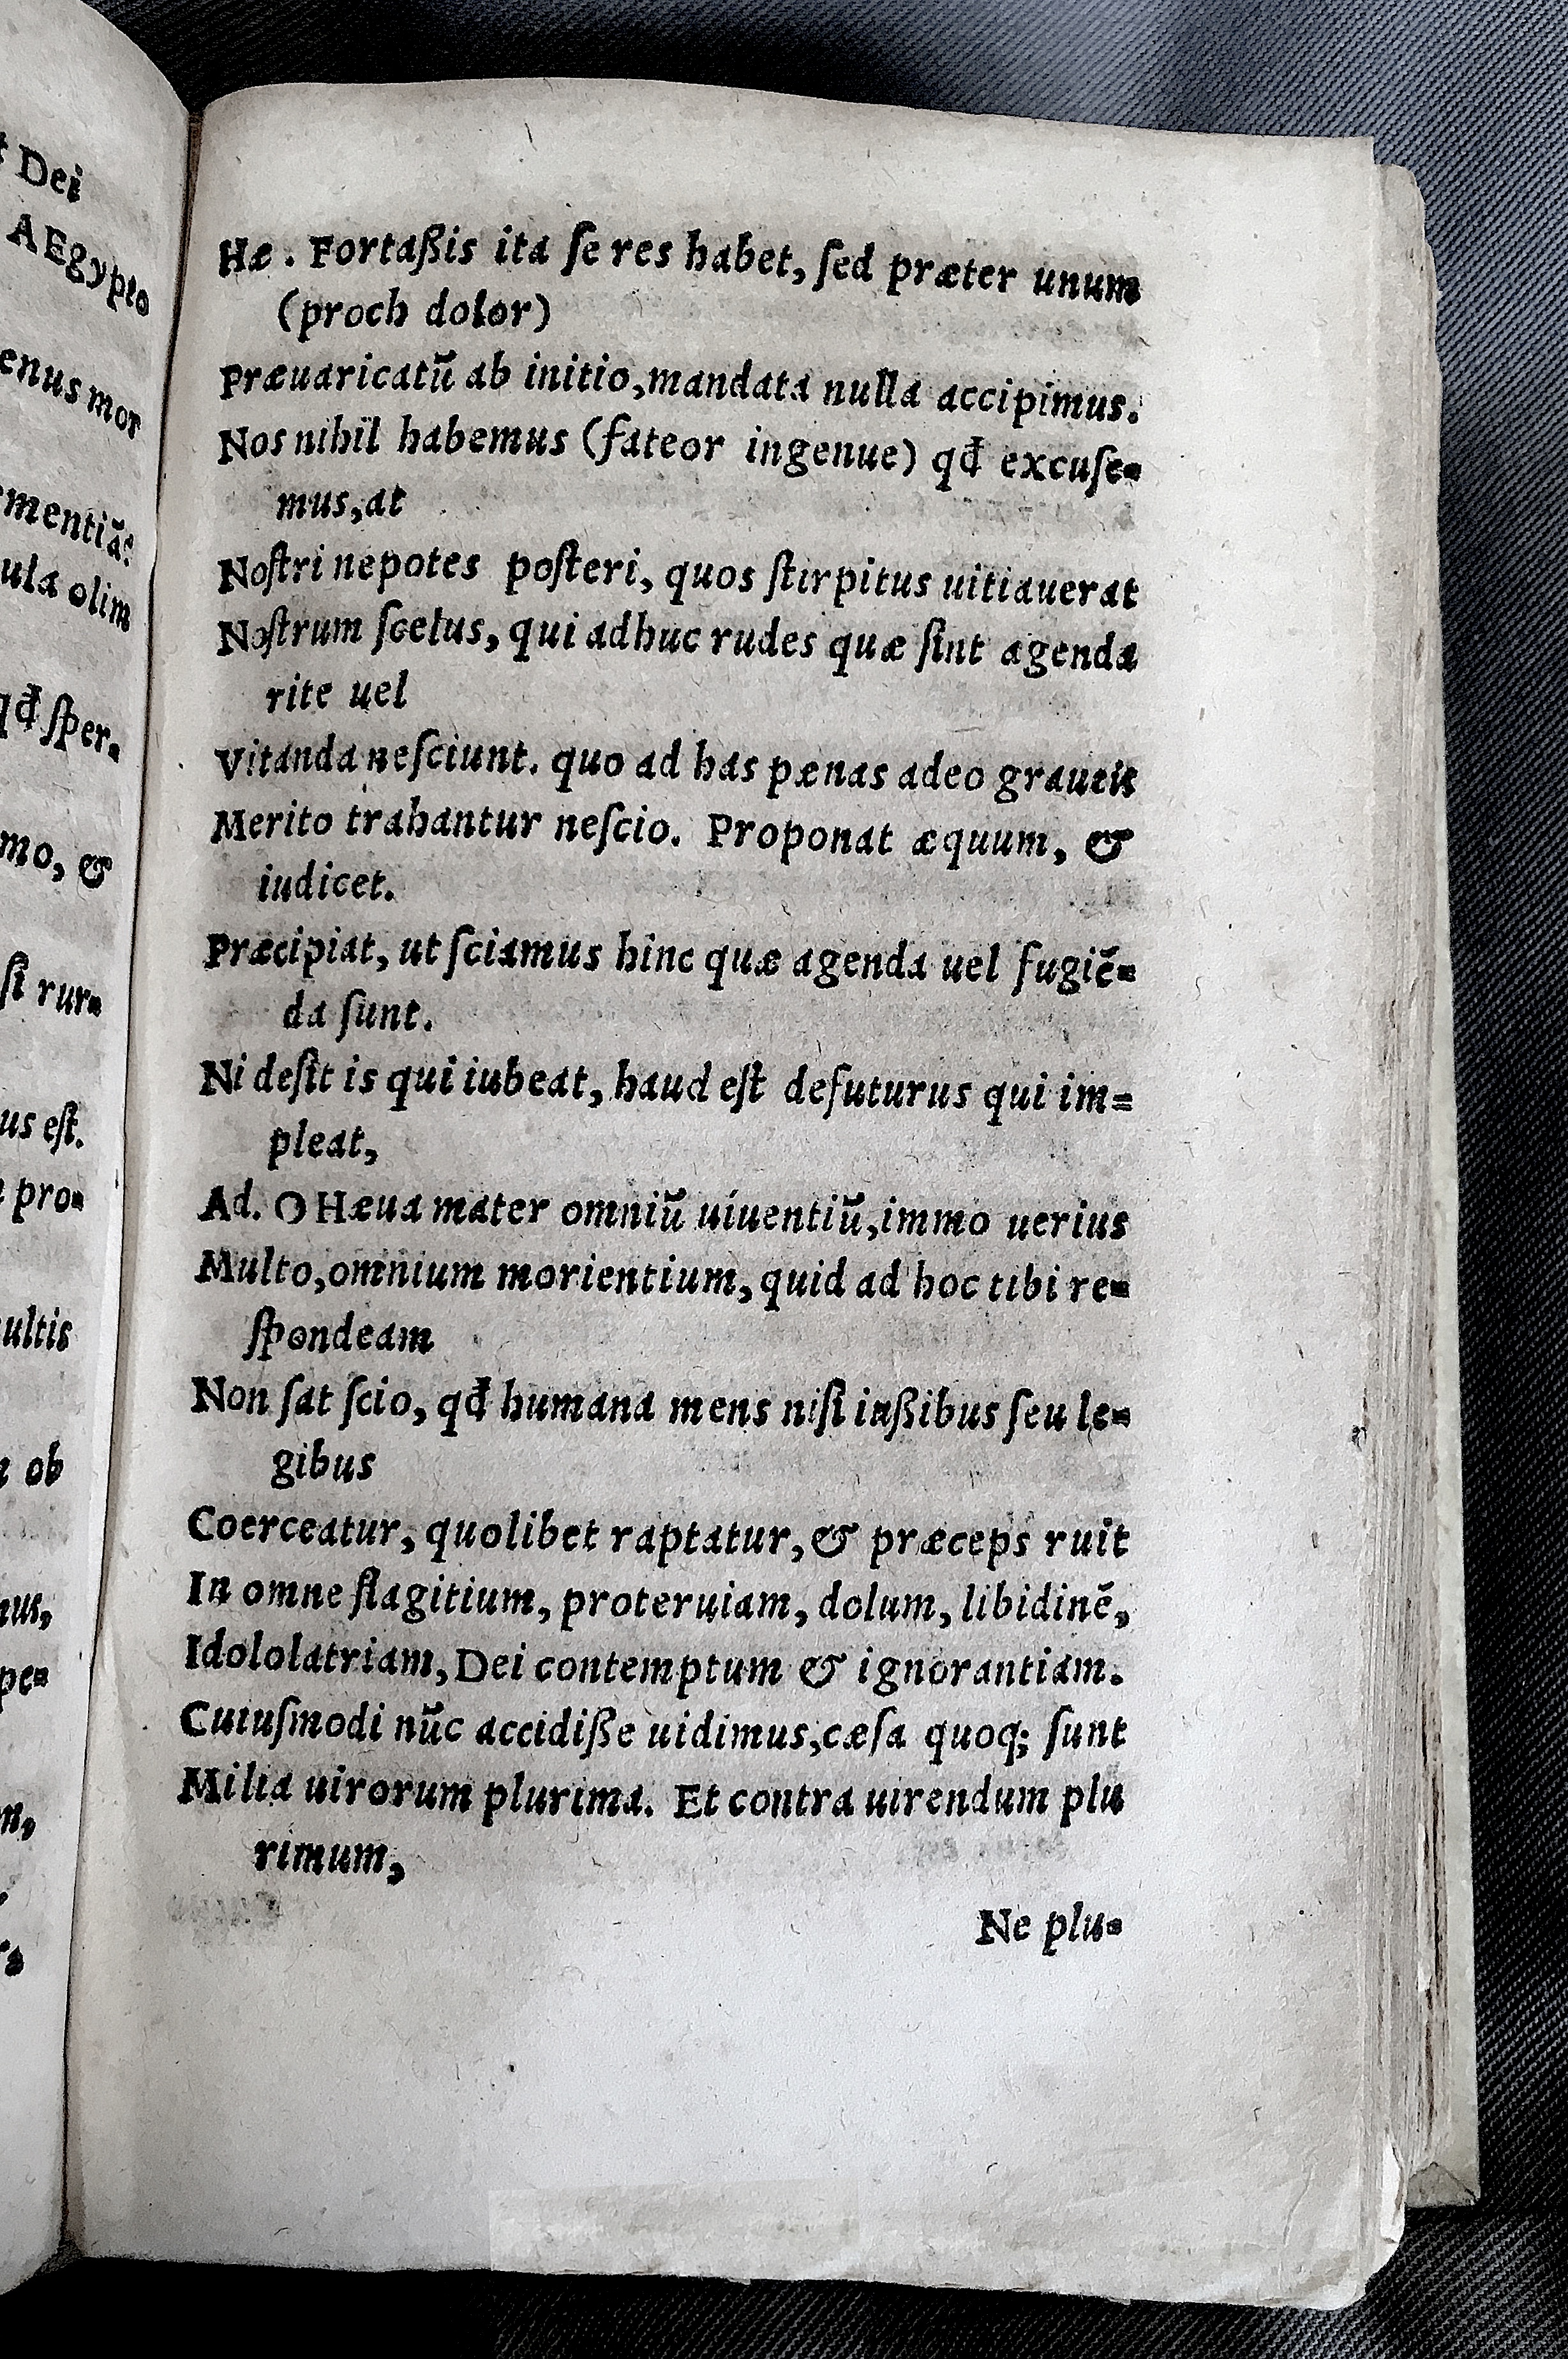 t Dei
AEgypto
enus mor
mentiã?
ula olim
qđ ſper-
mo, &
ſi rur-
us eſt.
pro-
ultis
ob
pe-
Hæ. Fortaßis ita ſe res habet, ſed præter unum
(proch dolor)
Præuaricatũ ab initio, mandata nulla accipimus.
Nos nihil habemus (fateor ingenue) qđ excuſe-
mus, at
Noſtri nepotes poſteri, quos ſtirpitus uitiauerat
Noſtrum ſcelus, qui adhuc rudes quæ ſint agenda
rite uel
Vitanda neſciunt. quo ad has pænas adeo graueis
Merito trahantur neſcio. Proponat æquum, &
iudicet.
Præcipiat, ut ſciamus hinc quæ agenda uel fugiẽ-
da ſunt.
Ni deſit is qui iubeat, haud eſt defuturus qui im-
pleat,
Ad. O Hæua mater omniũ uiuentiũ, immo uerius
Multo, omnium morientium, quid ad hoc tibi re-
ſpondeam
Non ſat ſcio, qđ humana mens niſi iußibus ſeu le-
gibus
Coerceatur, quolibet raptatur, & præceps ruit
In omne flagitium, proteruiam, dolum, libidinẽ,
Idololatriam, Dei contemptum & ignorantiam.
Cuiuſmodi nũc accidiße uidimus, cæſa quoq; ſunt
Milia uirorum plurima. Et contra uirendum plu
rimum,
Ne plu-